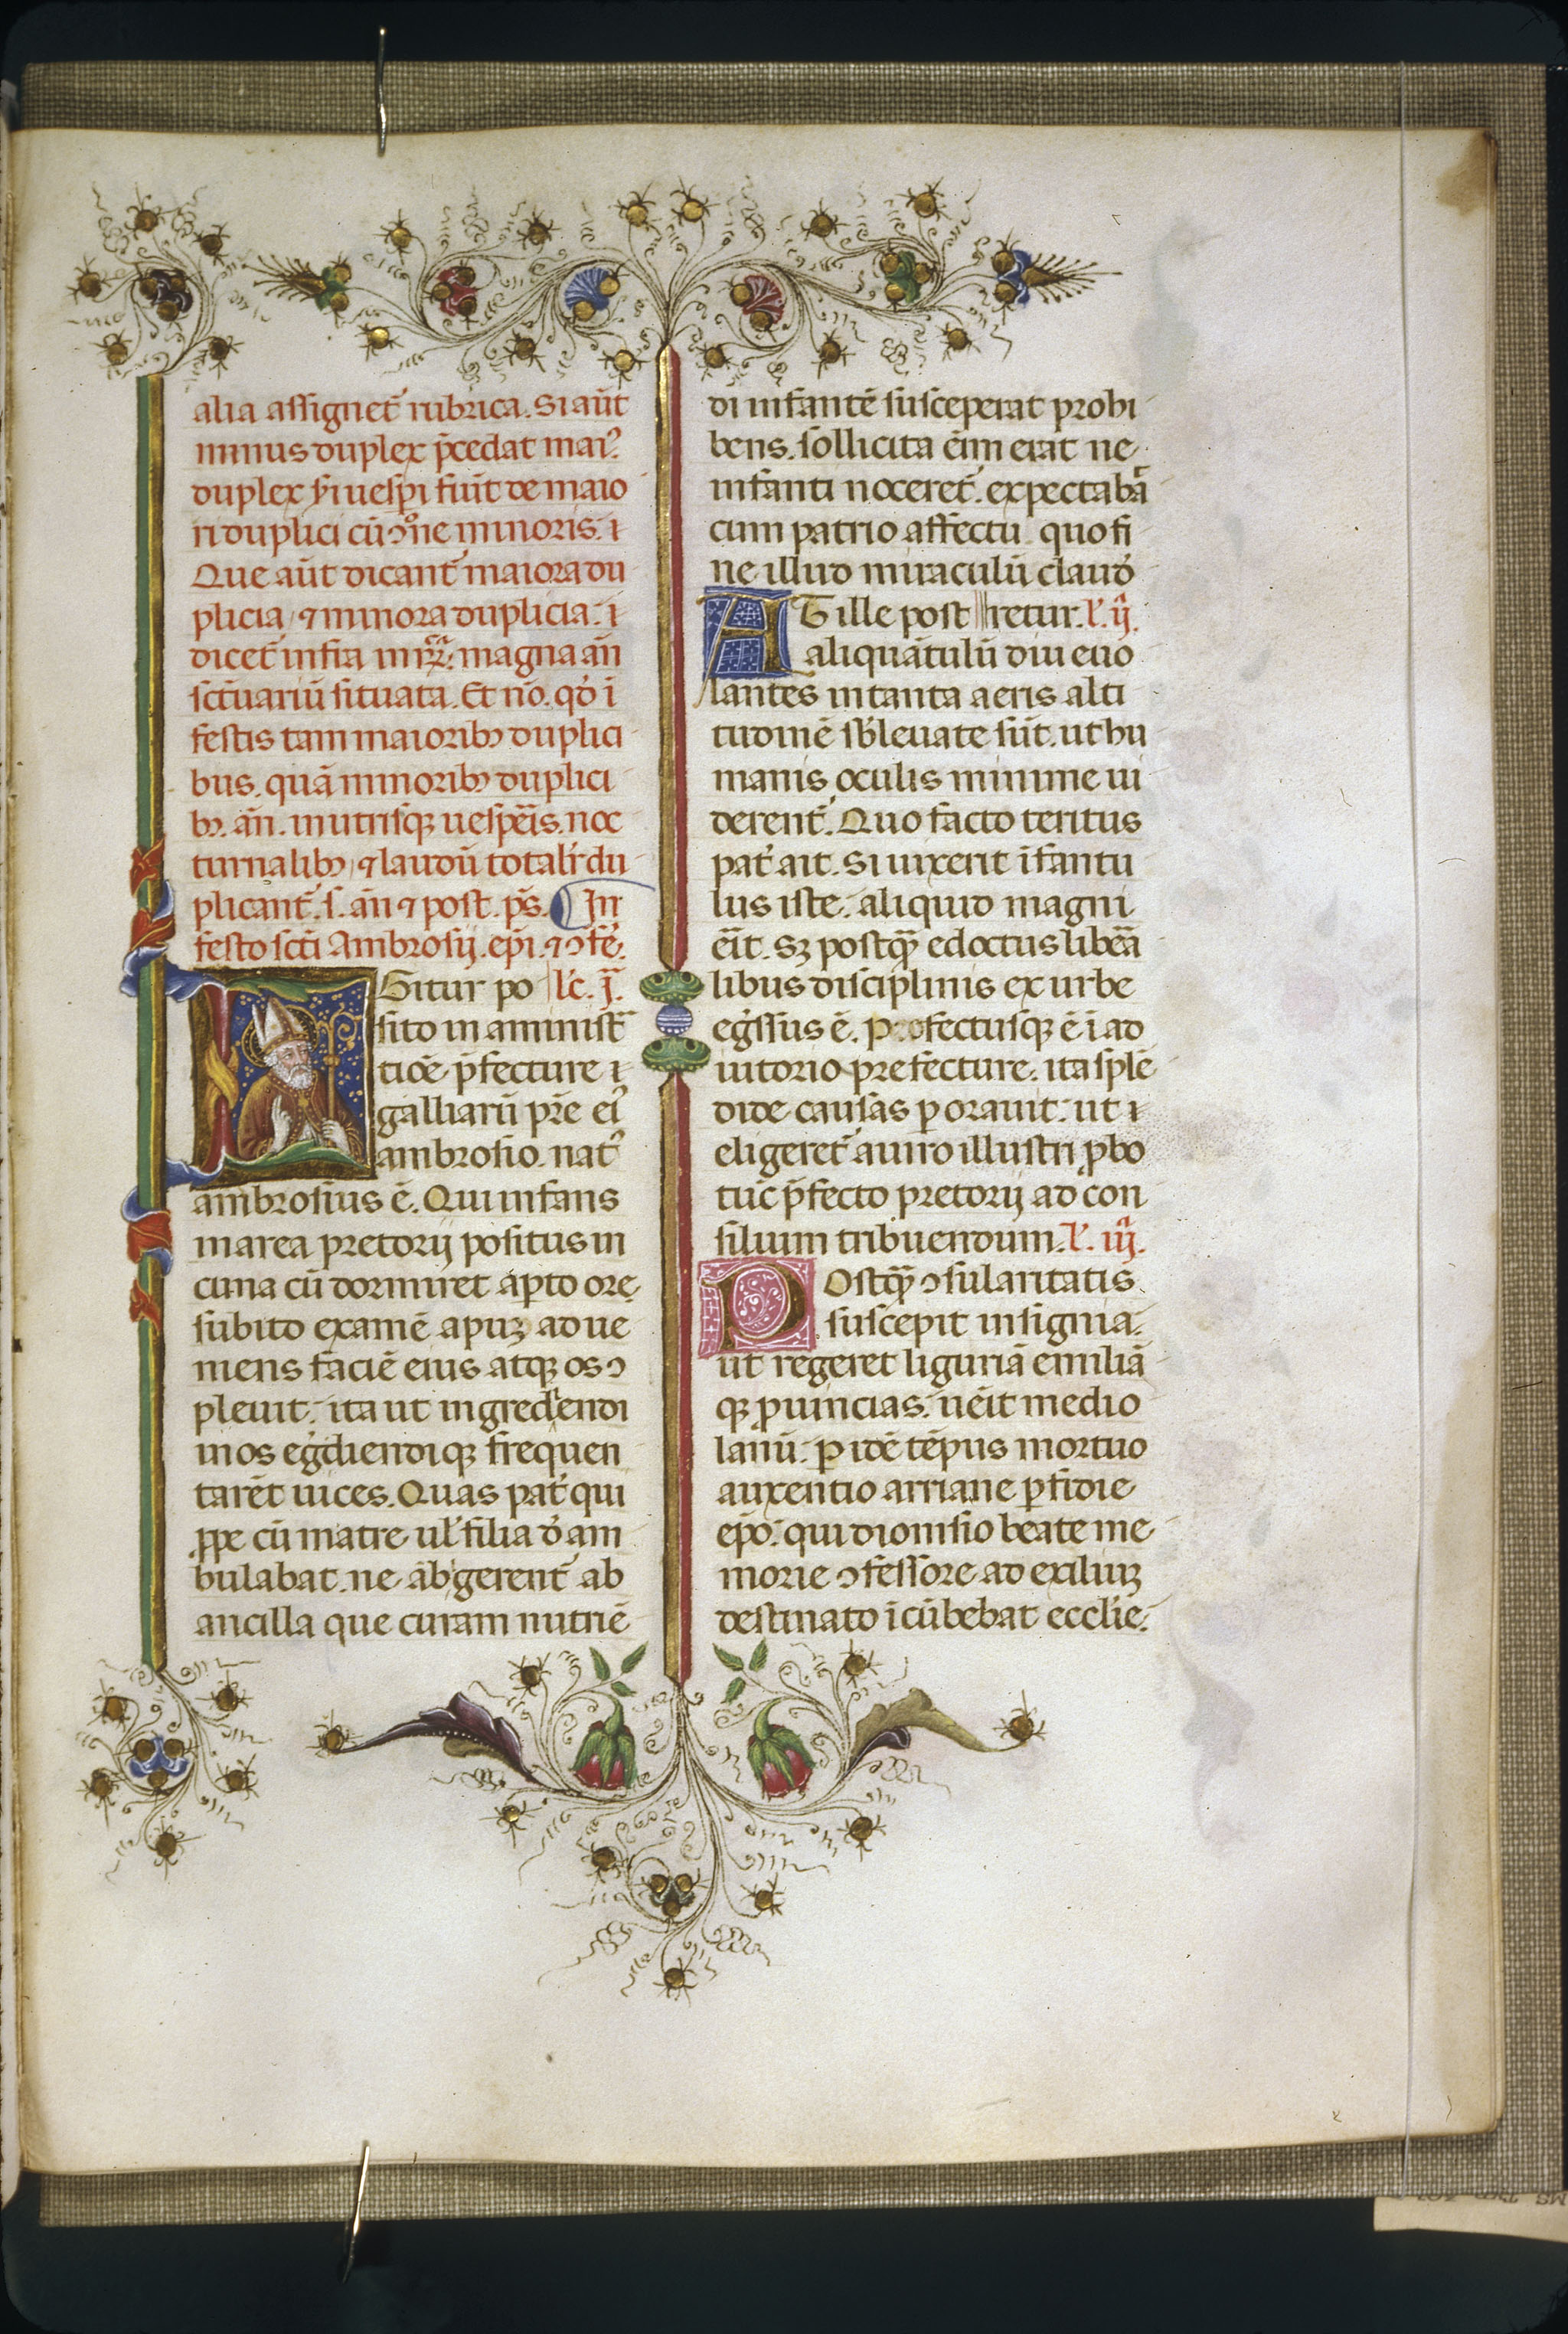 alia assignet᷑ rubrica. Si aūt
minus duplex p̄cedat mai⁹
duplex s̄i uesp̄i fiūt de maio
ri duplici cū ↄ̄o᷑ne minoris. ⁊
Que aūt dicant᷑ maiora du
plicia, ⁊ minora duplicia. ⁊
dicet᷑ infra magna an̄
sc̄tuariū situata. Et nō. qd̓ ī
festis tam maiorib; duplici
bus. quā minorib; duplici
b; an̄. in utrisq; uesp̄is. noc
turnalib; ⁊ laudū totalr̓ du
plicant᷑. s. an̄ ⁊ post. ps̄. In
festo sc̄ti Ambrosij. ep̄i. ⁊ ↄ̄fe.
IGitur po lc̄. j.ᵃ
sito in aminist᷑
tiōe p̄fecture ⁊
galliarū pr̄e ei⁹
ambrosio. nat⁹
ambrosius ē. Qui infans
in area pretorij positus in
cuna cū dormiret ap̄to ore
subito examē apuȝ adue
mens faciē eius atq; os ↄ
pleuit. ita ut ingrediendi
mos eg̓diendiq; frequen
tarēt uices. Quas pat̓ qui
ppe cū matre ul̓ filia d̓am
bulabat. ne ab̓igerent᷑ ab
ancilla que curam nutriē
di infantē susceperat prohi
bens. sollicita ēim erat ne
infanti noceret᷑. expectaba᷑
cum patrio affectu quo fi
ne illud miraculū claud̓
AT ille post retur. l̓. ij.ᵃ
aliquātulū diu euo
lantes in tanta aeris alti
tudinē sb̓leuate sūt. ut hu
manis oculis minime ui
derent᷑. Quo facto territus
pat̓ ait. Si uixerit īfantu
lus iste. aliquid magni
ēit. Sȝ postq̄ȝ edoctus libēa
libus disciplinis ex urbe
eg̓ssus ē. Profectusq; ē ī ad
iutorio prefecture. ita splē
dide causas p orauit. ut ⁊
eligeret᷑ a uiro illustri pbo
tūc p̄fecto pretorij ad con
silium tribuendum. l̓. iij.ᵃ
POstq̄ȝ ↄsularitatis
suscepit insignia.
ut regeret liguriā emiliā
q; puincias. uēit medio
lanū. P idē tēpus mortuo
auxentio arriane pfidie
ep̄o. qui dionisio beate me
morie ↄfessore ad exiliuȝ
destinato īcūbebat ecclīe.